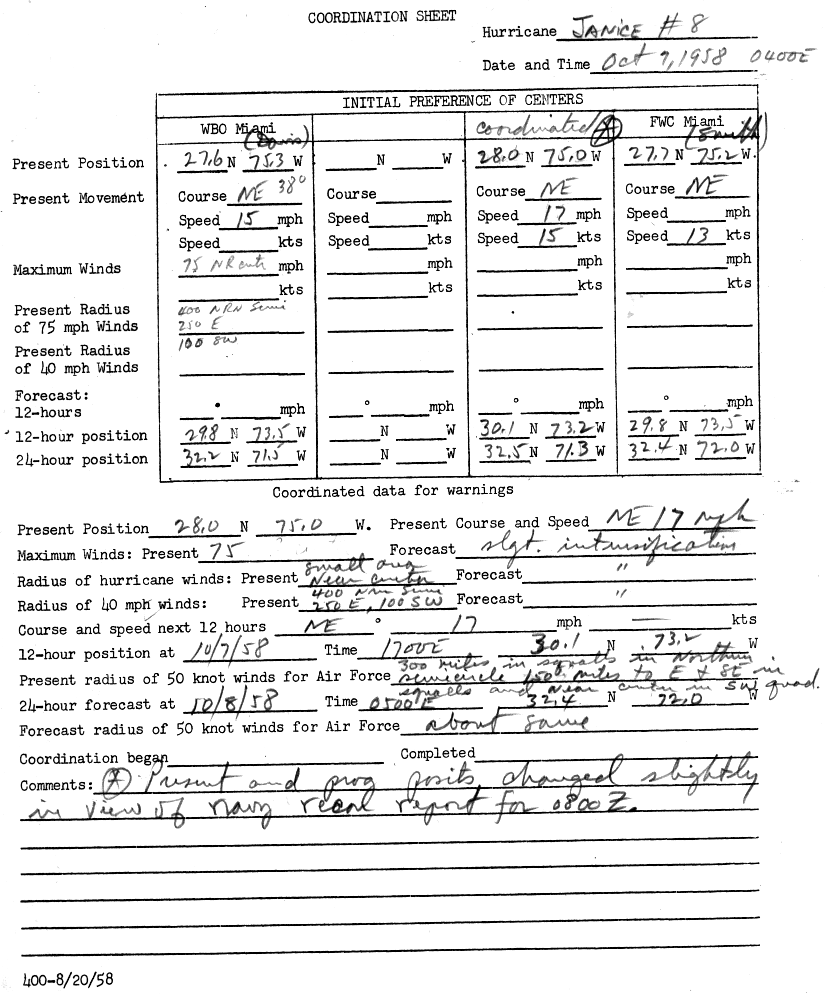 COORDINATION SHEET
Hurricane JANICE #8
Date and Time Oct 7, 1958 0400E
INITIAL PREFERENCE OF CENTERS
WBO Miami (Davis) coordinated (*) FWC Miami (Smith)
Present Position 27.6 N 75.3 W N W 28.0 N 75.0 W 27.7 N 75.2 W.
Present Movement Course NE 38° Course Course NE Course NE
Speed 15 mph Speed mph Speed 17 mph Speed mph
Speed kts Speed kts Speed 15 kts Speed 13 kts
Maximum Winds 75 NR cntr mph mph mph mph
kts kts kts kts
Present Radius 400 NRN Semi
of 75 mph Winds 250 E
Present Radius 100 SW
of 40 mph Winds
Forecast:
12-hours ° mph ° mph ° mph ° mph
12-hour position 29.8 N 73.5 W N W 30.1 N 73.2 W 29.8 N 73.5 W
24-hour position 32.2 N 71.5 W N W 32.5 N 71.3 W 32.4 N 72.0 W
Coordinated data for warnings
Present Position 28.0 N 75.0 W. Present Course and Speed NE 17 mph
Maximum Winds: Present 75 Forecast slgt. intensification
Radius of hurricane winds: Present small area near center Forecast "
Radius of 40 mph winds: Present 400 NRN Semi 250 E, 100 SW Forecast "
Course and speed next 12 hours NE ° 17 mph — kts
12-hour position at 10/7/58 Time 1700E 30.1 N 73.2 W
Present radius of 50 knot winds for Air Force 300 miles in squalls in Northern semicircle 150 miles to E & SE in squalls and near center in SW quad.
24-hour forecast at 10/8/58 Time 0500E 32.4 N 72.0 W
Forecast radius of 50 knot winds for Air Force about same
Coordination began Completed
Comments: (*) Present and prog posits changed slightly
in view of navy recon report for 0800Z.
400-8/20/58